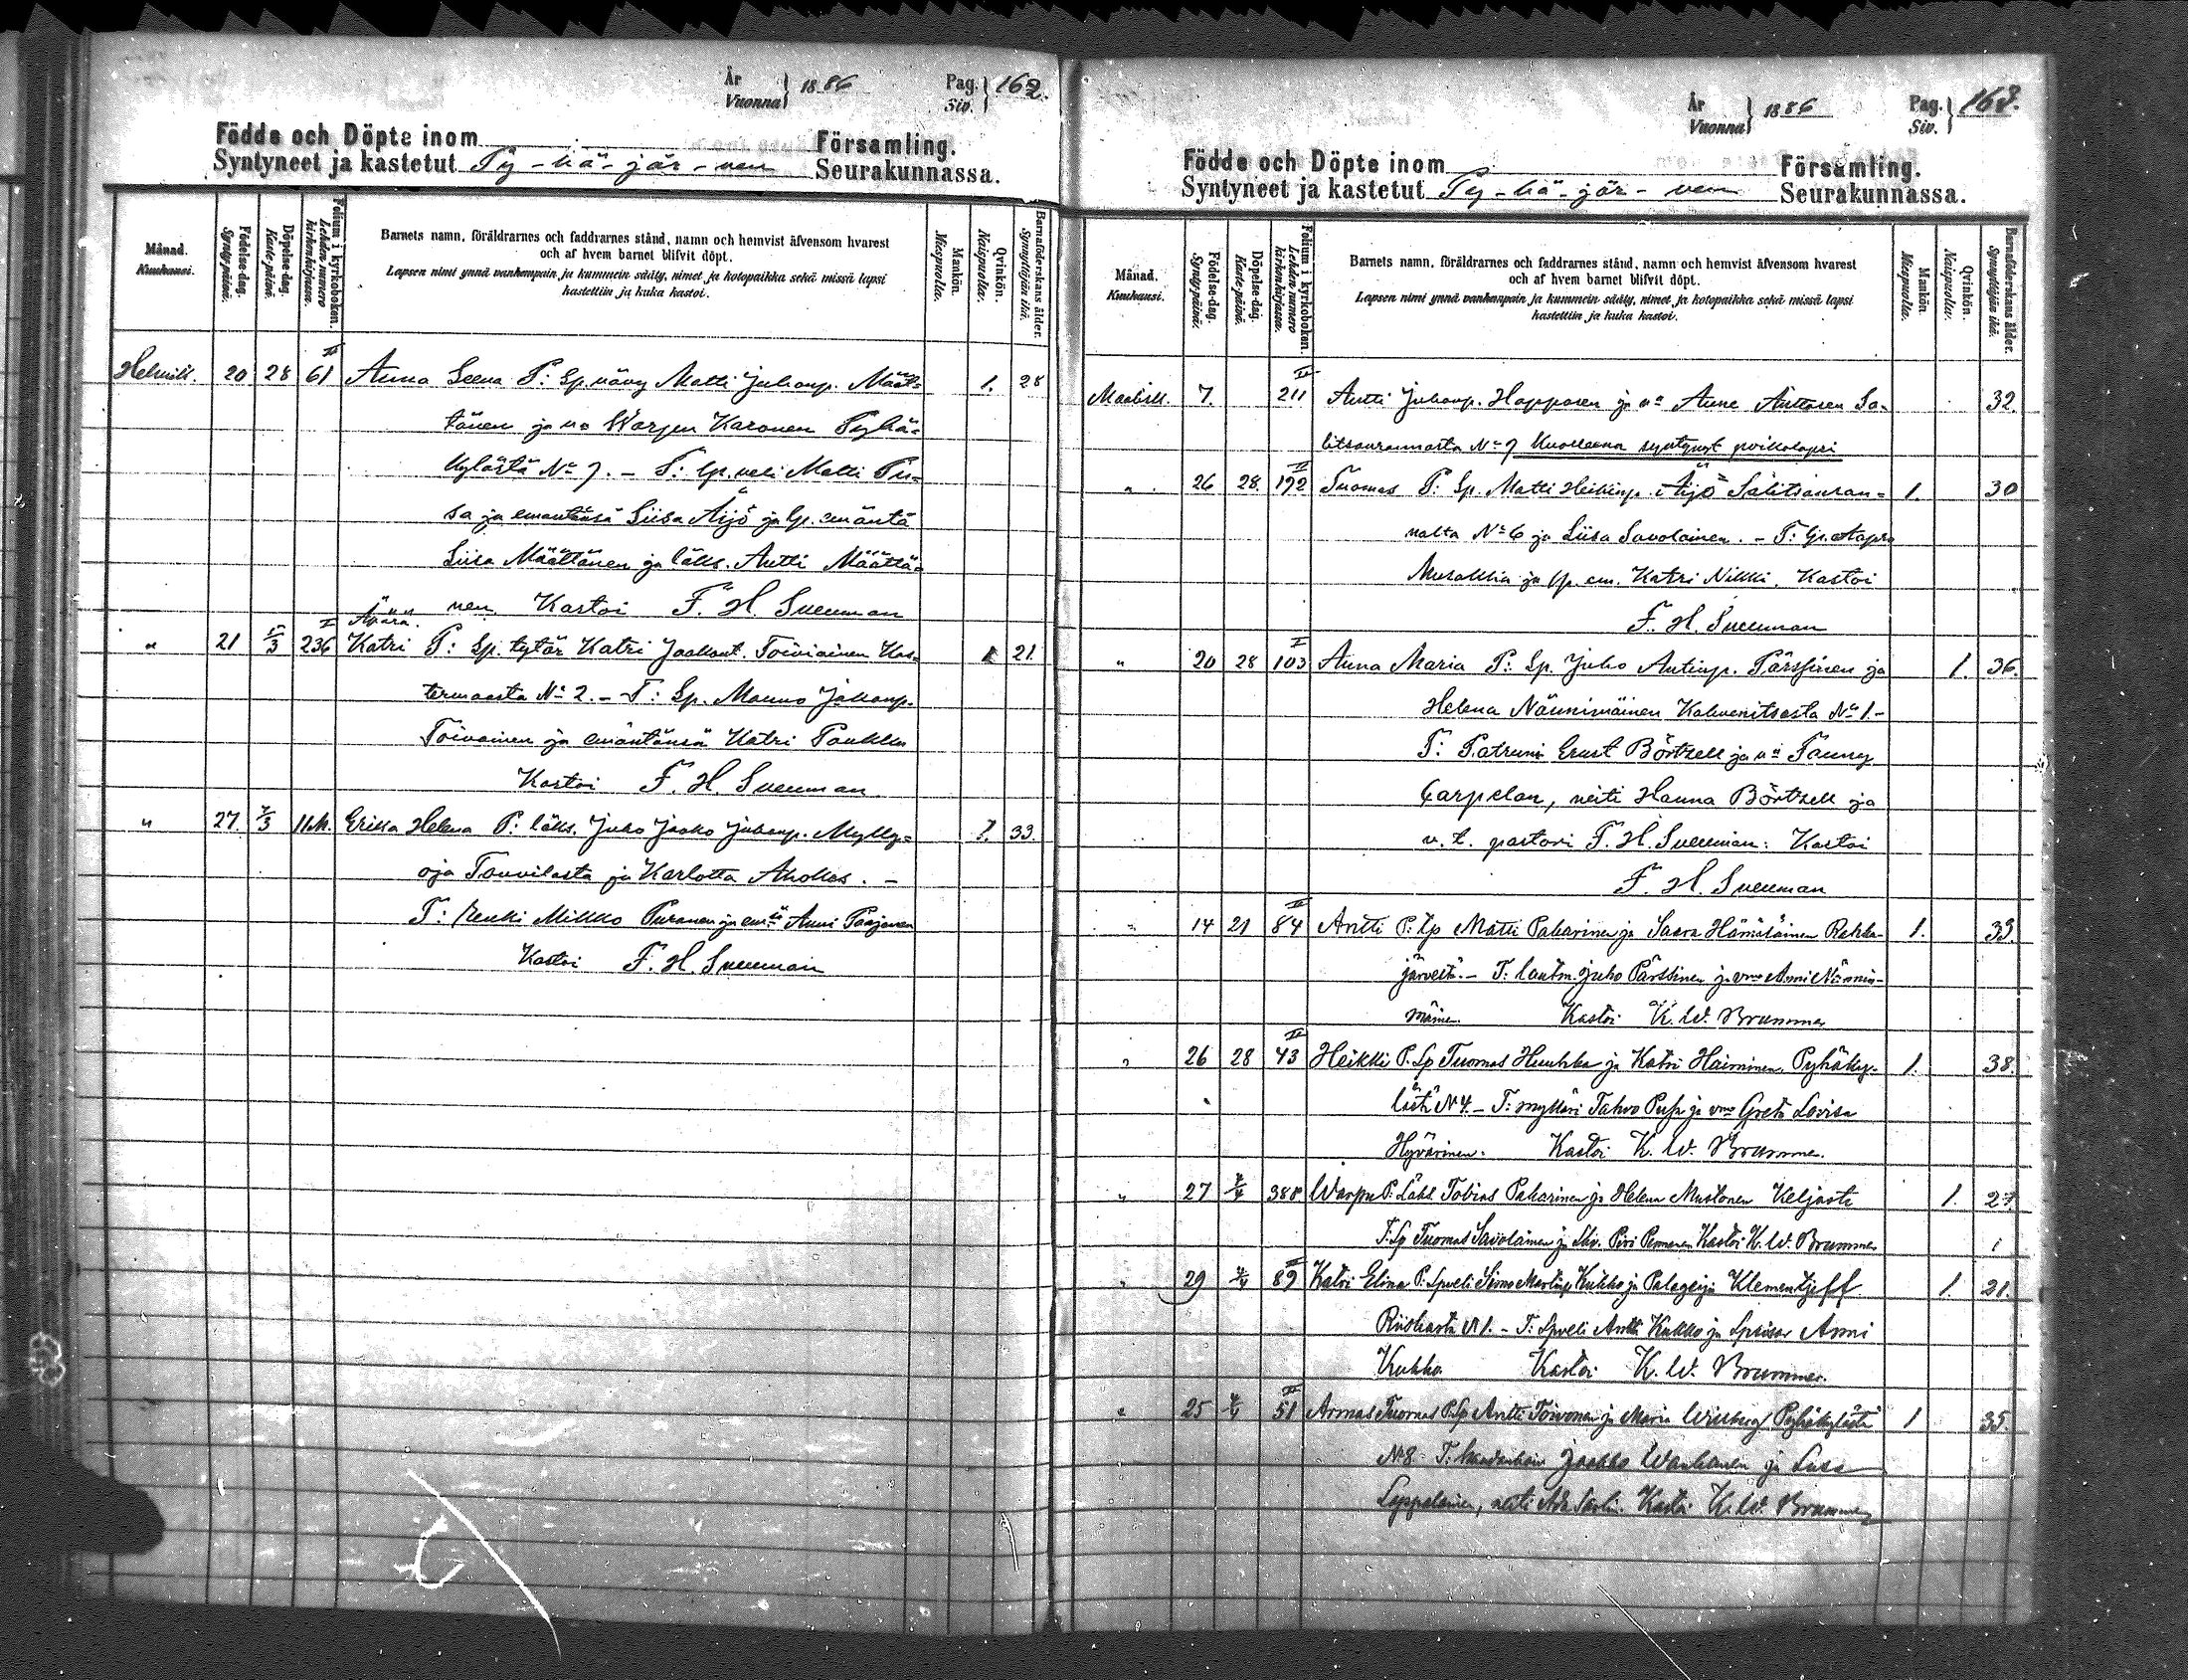 År
Vuonna } 1886 Pag.
Siv. } 162.
Födde och Döpte inom Församling.
Syntyneet ja kastetut Py-hä-jär-ven Seurakunnassa.
Månad.
Kuukausi.
Födelse-dag.
Synty-päivä.
Döpelse-dag.
Kaste-päivä.
Folium i kyrkoboken.
Lehden numero kirkonkirjassa.
Barnets namn, föräldrarnes och faddrarnes stånd, namn och hemvist äfvensom hvarest
och af hvem barnet blifvit döpt.
Lapsen nimi ynnä vanhempain ja kummein sääty, nimet ja kotopaikka sekä missä lapsi
kastettiin ja kuka kastoi.
Mankön.
Miespuolia.
Qvinkön.
Naispuolia.
Barnaföderskans ålder.
Synnyttäjän ikä.
Helmik. 20 28 II 61 Anna Leena P: Lp. vävy Matti Juhanp. Määt- 1. 28
tänen ja vo Warpu Karonen Pyhä-
kylästä No 7. – T: lp. veli Matti Pu-
sa ja emäntänsä Liisa Äijö ja lp. emäntä
Liisa Määttänen ja läks. Antti Määttä-
nen. Kastoi F. H. Sveuman
Äpärä.
" 21 5/3 I 236 Katri P: Lp. tytär Katri Jaakont. Toiviainen Kos- 1 21.
termaasta No 2. – T: Lp. Mauno Jakonp.
Toivainen ja emäntänsä Katri Paukku
Kastoi F. H. Sveuman
" 27 7/3 II.M. Erika Helena P: läks. Juho Jaako Juhanp. Mylly- 1. 33.
oja Touvilasta ja Karlotta Ahokas. –
T: Renki Mikko Puranen ja em:ä Anni Paajanen
Kastoi F. H. Sveuman
År
Vuonna } 1886 Pag.
Siv. } 163.
Födde och Döpte inom Församling.
Syntyneet ja kastetut Py-hä-jär-ven Seurakunnassa.
Månad.
Kuukausi.
Födelse-dag.
Synty-päivä.
Döpelse-dag.
Kaste-päivä.
Folium i kyrkoboken.
Lehden numero kirkonkirjassa.
Barnets namn, föräldrarnes och faddrarnes stånd, namn och hemvist äfvensom hvarest
och af hvem barnet blifvit döpt.
Lapsen nimi ynnä vanhempain ja kummein sääty, nimet ja kotopaikka sekä missä lapsi
kastettiin ja kuka kastoi.
Mankön.
Miespuolia.
Qvinkön.
Naispuolia.
Barnaföderskans ålder.
Synnyttäjän ikä.
Maalisk. 7. II 211 Antti Juhanp. Happonen ja vo Anne Anttonen Sa- 32.
litsanrannasta No 7 Kuolleena syntynyt poikalapsi
" 26 28. II 192 Tuomas P: Lp. Matti Heikinp. Äijö Salitsanran- 1. 30
nalta No 6 ja Liisa Savolainen. – T: lp. Aapro
Murakkia ja lp. em. Katri Nikki. Kastoi
F. H. Sveuman
" 20 28 I 103 Anna Maria P: Lp. Juho Antinp. Pärssinen ja 1. 36.
Helena Näunimäinen Kahvenitsasta No 1.–
T: Patruuni Ernst Börtzell ja vo Fanny
Carpelan, neiti Hanna Börtzell ja
v. t. pastori F. H. Sveuman: Kastoi
F. H. Sveuman
" 14 21 II 84 Antti P: Lp Matti Pakarinen ja Saara Hämäläinen Rahka- 1. 33.
järveltä. – T: lautm. Juho Pärssinen ja vmo Anni Nännin-
mäinen. Kastoi K. W. Brummer
" 26 28 II 43 Heikki P. Lp Tuomas Huuhka ja Katri Haiminen Pyhäky- 1. 38.
lästä N 4. – T: mylläri Tahvo Pusa ja vmo Greta Lovisa
Hyvärinen. Kastoi K. W. Brummer.
" 27 4/4 388 Warpu P: Läks Tobias Pakarinen ja Helena Mustonen Keljasta 1. 27.
T: Lp Tuomas Savolainen ja Piri Pennanen Kastoi K. W. Brummer
" 29 4/4 II 89 Katri Elina P: Lpveli Simo Martinp Kukko ja Palageija Klementjeff 1. 21.
Riiskasta N 1. – T: Lpveli Antti Kukko ja Lpsisar Anni
Kukko. Kastoi K. W. Brummer.
" 25 4/4 II 51 Armas Tuomas P: Lp Antti Toivonen ja Maria Pyhäkylästä 1 35.
N 8. T: Jaakko Wanhanen ja Liisa
Leppalainen, neiti Kastoi K. W. Brummer